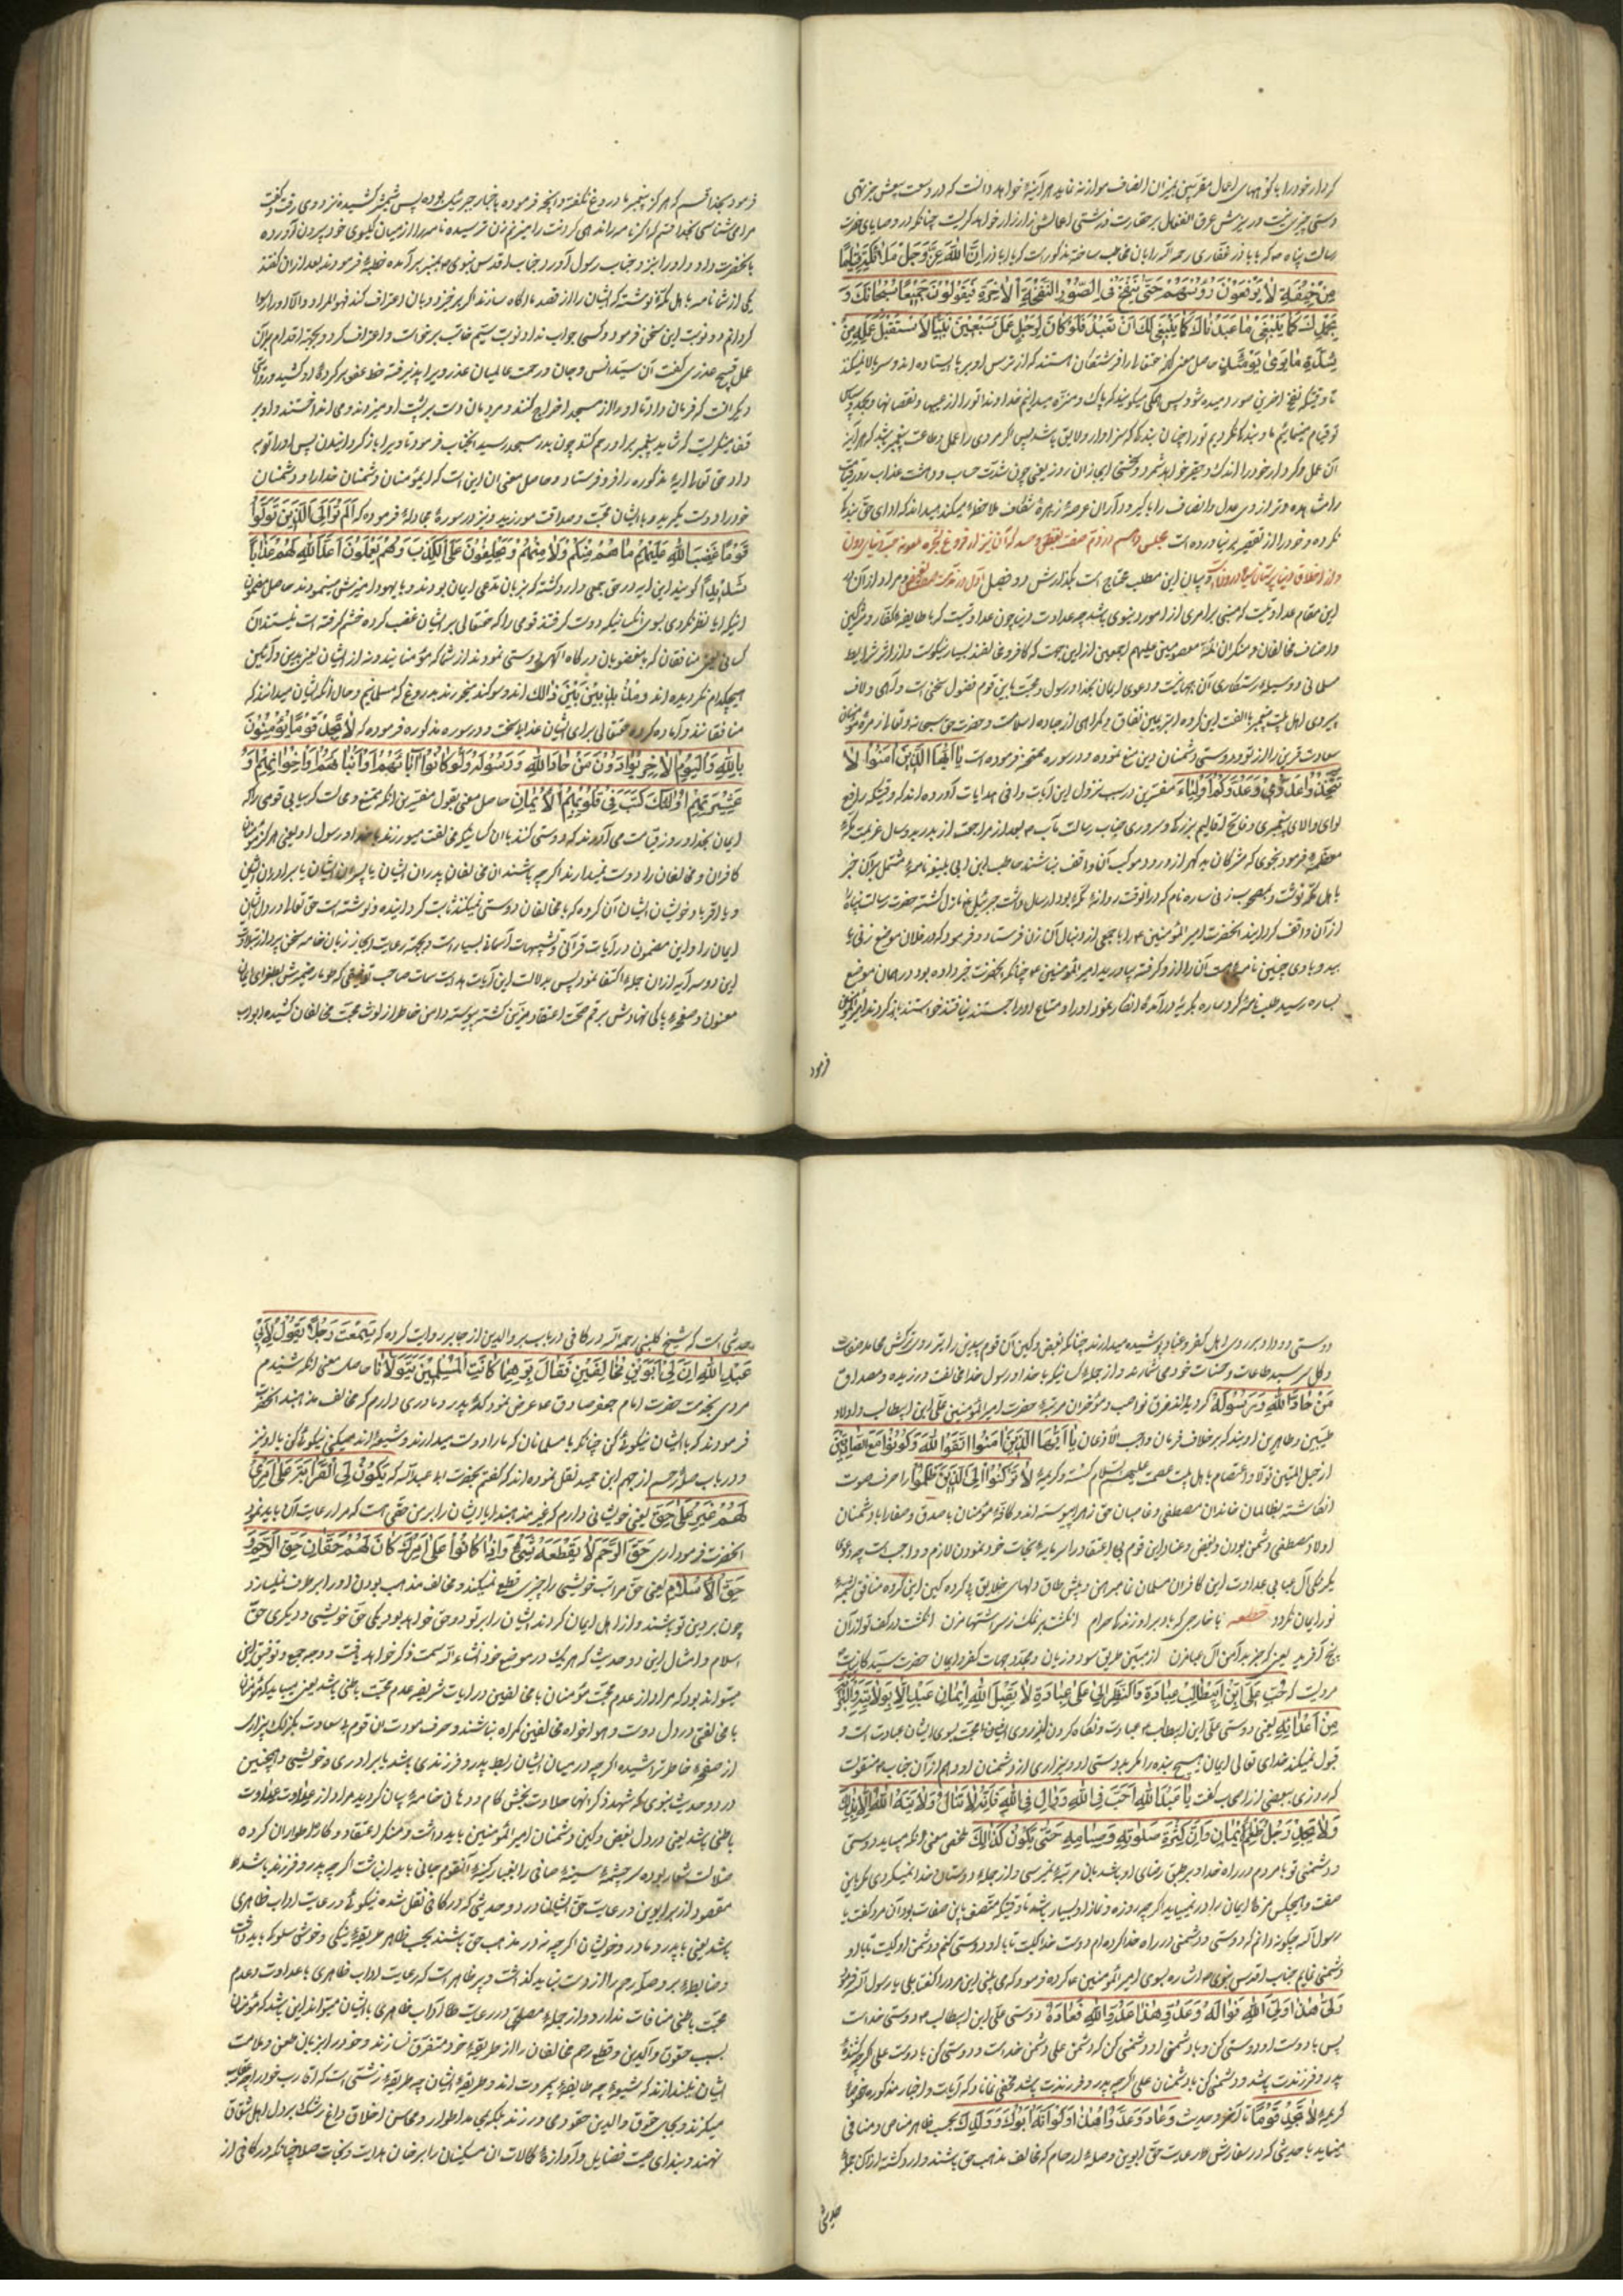 کردار خود را با کوههای اعمال مقربین بمیزان انصاف موازنه نماید هر آینه خواهد دانست که در دست سعیش جز تهی
دستی چیزی نیست و ریزش عرق انفعال بر حقارت و زشتی اعمالش زار زار خواهد گریست چنانکه در وصایای حضرت
رسالت پناه که با باذر غفاری رحمه الله را بان مخاطب ساخته مذکور است که یا اباذر ان الله عز و جل ملائکة قیاما
من خیفته لا یرفعون رؤسهم حتی ینفخ فی الصور النفخة الاخرة فیقولون جمیعا سبحانک و
بحمدک ما عبدناک کما ینبغی لک ان تعبد فلو کان لرجل عمل سبعین نبیا لاستقل عمله من
شدة ما یری یومئذ حاصل معنی آنکه حقتعالی را فرشتگان هستند که از ترس او بر پا ایستاده اند و سر بالا نمیکنند
تا وقتیکه نفخ آخرین صور دمیده شود پس همگی میگویند که پاک و منزه میدانیم خداوندا تو را از عیبها و نقصانها و بحمد و سپاس
تو قیام مینمائیم ما و بندگی نکردیم تو را چنان بندگی که سزاوار و لایق باشد پس اگر مردی را عمل و طاعت هفتاد پیغمبر باشد هر آینه
آن عمل و کردار خود را اندک و حقیر خواهد شمرد و سختی اینجا از آن روز یعنی چون شدت حساب و دهشت عذاب روز قیامت
را مشاهده و ترازوی عدل و انصاف را با گیر و دار آن عرصه زهره شکاف ملاحظه میکند میداند که ادای حق بندگی
نکرده و خود را از تقصیر بر نیاورده است مجلس دهم در ذم صفت بغض و حسد که آن نیز از فروع شجره ملعونه حب دنیای دون
و از اخلاق دنیا پرستان سیاه درونست و بیان این مطلب محتاج است بگذارش دو فصل اول در مذمت صفت بغض و مراد از آن در
این مقام عداوتیست که مبنی بر امری از امور دنیوی باشد چه عداوت دینی چون عداوتیست که با طایفه کفار و مشرکین
و اصناف مخالفان و منکران ائمه معصومین علیهم اجمعین از این جهت که کافر و مخالفند بسیار نیکوست و از اثر شرایط
مسلمانی و وسیله رستگاری آن جهانیست و دعوی ایمان بخدا و رسول و محبت با این قوم فضول سخنی است واهی و لاف
پیروی اهل بیت پیغمبر با الفت این گروه ابتر عین نفاق و گمراهی از جاده اسلامست و حضرت حق سبحانه و تعالی زمره مؤمنان
سعادت قرین را از تودد و دوستی دشمنان دین منع نموده و در سوره ممتحنه فرموده است یا ایها الذین امنوا لا
تتخذوا عدوی و عدوکم اولیاء مفسرین در سبب نزول این آیات وافی هدایات آورده اند که وقتیکه رافع
لوای والای پیغمبری و فاتح اقالیم بزرگی و سروری جناب رسالت مآب بعد از مراجعت از بدر بدو سال عزیمت مکه
معظمه فرمود بنحوی که مشرکان بد گهر از ورود موکب آن واقف نباشند حاطب ابن ابی بلتعه نامه مشتمل بر آن خبر
باهل مکه نوشت و مصحوب زنی ساره نام که در آنوقت روانه مکه بود ارسال داشت جبرئیل نازل گشته حضرت رسالت پناه را
از آن واقف گردانید آنحضرت امیر المؤمنین را با جمعی از دنبال آن زن فرستاد و فرمود که در فلان موضع زنی با
بید و با وی چنین نامه هست آن را از او گرفته بیاورید امیر المؤمنین چنانکه آنحضرت خبر داده بود در همان موضع
بساره رسید طلب نامه کرد ساره بگریه درآمده انکار نمود او را و متاع او را جستند نیافتند خواستند باز گردند امیر المؤمنین
فرمود
فرمود بخدا قسم که هرگز پیغمبر ما دروغ نگفته و آنچه فرموده باخبار جبرئیل بوده پس شمشیر کشیده نزد وی رفت و گفت
مرا می شناسی بخدا قسم که اگر نامه را ندهی گردنت را میزنم زن ترسیده نامه را از میان گیسوی خود بیرون آورده
بآنحضرت داد و او را نیز بجناب رسول آورد جناب اقدس نبوی بمنبر برآمده خطبه فرمودند بعد از آن گفتند
یکی از شما نامه باهل مکه نوشته که ایشان را از قصد ما آگاه سازد اگر برخیزد و بان اعتراف کند فهو المراد و الا او را رسوا
گردانم دو نوبت این سخن فرمود و کسی جواب نداد نوبت سیم حاطب برخواست و اعتراف کرد و بجهت اقدام بر آن
عمل قبیح عذری گفت آن سید انس و جان و رحمت عالمیان عذر ویرا پذیرفته خط عفو بر کرده او کشید و روایتی
دیگر آنست که فرمان داد تا او را از مسجد اخراج کنند و مردمان دست بر پشت او میزدند و می انداختند و او بر
قفا مینگریست که شاید پیغمبر بر او رحم کند چون بدر مسجد رسید آنجناب فرمود تا ویرا باز گردانیدند پس او را توبه
داد حق تعالی آیه مذکوره را فرو فرستاد و حاصل معنی آن این است که ای مؤمنان دشمنان خدا را و دشمنان
خود را دوست مگیرید و با ایشان محبت و صداقت مورزید و نیز در سوره مجادله فرموده که الم تر الی الذین تولوا
قوما غضب الله علیهم ما هم منکم ولا منهم و یحلفون علی الکذب و هم یعلمون اعد الله لهم عذابا
شدیدا گویند این آیه در حق جمعی وارد گشته که بزبان مدعی ایمان بودند و با یهود آمیزش مینمودند حاصل مضمون
اینکه آیا نظر نکردی بسوی آنکسانیکه دوست گرفتند قومی را که حقتعالی بر ایشان غضب کرده خشم گرفته است نیستند آن
کسانی یعنی منافقان که با مغضوبان درگاه الهی دوستی نمودند از شما که مؤمنانید و نه از ایشان یعنی بدین و آئین
هیچکدام نگردیده اند مذبذبین بین ذالک اند و سوگند میخورند بدروغ که مسلمانیم و حال آنکه ایشان میدانند که
منافقانند و آماده کرده حقتعالی برای ایشان عذاب سخت و در سوره مذکوره فرموده که لا تجد قوما یؤمنون
بالله و الیوم الاخر یوادون من حاد الله و رسوله ولو کانوا آبائهم او ابنائهم او اخوانهم او
عشیرتهم اولئک کتب فی قلوبهم الایمان حاصل معنی بقول مفسرین آنکه ممتنع و محالست که بیابی قومی را که
ایمان بخدا و روز قیامت می آورند که دوستی کنند با آن کسانیکه مخالفت میورزند با خدا و رسول او یعنی هرگز مؤمنان
کافران و مخالفان را دوست نمیدارند اگر چه باشند آن مخالفان پدران ایشان یا پسران ایشان یا برادران ایشان
و یا اقربا و خویشان ایشان آن گروه که با مخالفان دوستی نمیکنند ثابت گردانیده و نوشته است حق تعالی در دل ایشان
ایمان را و این مضمون در آیات قرآنی و تنبیهات آسمانی بسیار است و بجهت رعایت ایجاز زبان خامه سخن پرداز بتلاوت
این دو سه آیه از آن جمله اکتفا نمود پس بدلالت این آیات هدایت سمات صاحب توفیقی که طومار ضمیرش بطغرای ایمان
معنون و صفحه پاکی نهادش برقم صحت اعتقاد مزین گشته پیوسته دامن خاطر از لوث محبت مخالفان کشیده ابواب
دوستی و وداد بر روی اهل کفر و عناد پوشیده میدارند چنانکه بغض و کین آن قوم بیدین را بر روی ترکش محامد صفات
و گل سر سبد طاعات و حسنات خود می شمارند و از جمله کسانیکه با خدا و رسول خدا مخالفت ورزیده و مصداق
من حاد الله و رسوله گردیده اند فرق نواصب و مؤخران مرتبه حضرت امیر المؤمنین علی ابن ابیطالب و اولاد
طیبین و طاهرین اویند که بر خلاف فرمان واجب الاذعان یا ایها الذین امنوا اتقوا الله و کونوا مع الصادقین
از حبل المتین تولا و اعتصام باهل بیت عصمت علیهم السلام گسسته و کریمه لا ترکنوا الی الذین ظلموا را حرف و صوت
انگاشته بظالمان خاندان مصطفی و غاصبان حق زهرا پیوسته اند و کافه مؤمنان با صدق و صفا را با دشمنان
اولاد مصطفی دشمن بودن و بغض و عناد این قوم بی اعتقاد را سرمایه نجات خود نمودن لازم و واجبست چه دعوی
یکرنگی آل عبا بی عداوت این کافران مسلمان نما پیراهن و پیش طاق دلهای خلایق بی گرده کین این گرده منافق آئینه
نور ایمان نگردد قطعه با خارجی که باد بر او زندگی حرام انگشت بر نمک زسر اشتها مزن انگشت در کف تو از آن
پنج آفرید یعنی که جز بدامن آل عبا مزن از مبین طریق سود و زیان و مجدد جهات کفر و ایمان حضرت سید کاینات
مرویست که حب علی ابن ابیطالب عبادة و النظر الی علی عبادة لا یقبل الله ایمان عبد الا بولایته و البرائة
من اعدائه یعنی دوستی علی ابن ابیطالب عبادت و نگاه کردن از روی اخلاص و محبت بسوی ایشان عبادت است و
قبول نمیکند خدای تعالی ایمان هیچ بنده را مگر بدوستی او و بیزاری از دشمنان او و هم از آن جناب منقولست
که روزی ببعضی از اصحاب گفت یا عبد الله احب فی الله و وال فی الله فانه لا تنال ولایة الله الا بذلک
ولا یجد رجل طعم الایمان و ان کثرت صلوته و صیامه حتی یکون کذالک ملخص معنی آنکه میباید دوستی
و دشمنی تو با مردم در راه خدا و بر طبق رضای او باشد بان مرتبه نمیرسی و از جمله دوستان خدا نمیگردی مگر باین
صفت و هیچکس مزه ایمان را در نمییابد اگر چه روزه و نماز او بسیار باشد تا وقتیکه متصف باین صفات بود آن مرد گفت یا
رسول الله چگونه دانم که دوستی و دشمنی در راه خدا کرده ام دوست خدا کیست تا با او دوستی کنم و دشمن او کیست تا با او
دشمنی نمایم جناب اقدس نبوی اشاره بسوی امیر المؤمنین کرده فرمود که می بینی این مرد را گفت بلی یا رسول الله فرمود
ولی هذا ولی الله فواله و عدو هذا عدو الله فعاده دوستی علی ابن ابیطالب دوستی خداست
پس با دوست او دوستی کن و با دشمن او دشمنی کن که دشمن علی دشمن خداست و دوستی کن با دوست علی اگر چه کشنده
پدر و فرزندت باشد و دشمنی کن با دشمنان علی اگر چه پدر و فرزندت باشد مخفی نماند که آیات و اخبار مذکوره خصوصا
کریمه لا تجد قوما تا آخر و حدیث و عاد عدو هذا ولو انه ابوک و ولدک بحسب ظاهر متناقض و منافی
مینماید با حدیثی که در سفارش و رعایت حق ابوین و صله ارحام که مخالف مذهب حق باشند وارد گشته از آن جمله
حدیثی
حدیثی است که شیخ کلینی رحمه الله در کافی در باب بر والدین از جابر روایت کرده که سمعت رجلا یقول لابی
عبد الله ان لی ابوین مخالفین فقال برهما کما تبر المسلمین ممن یتولانا حاصل معنی آنکه شنیدم
مردی بخدمت حضرت امام جعفر صادق عرض نمود که پدر و مادری دارم که مخالف مذهبند آنحضرت
فرمودند که با ایشان نیکوئی کن چنانکه با مسلمانان که ما را دوست میدارند و شیعه مایند میکنی نیکوئی کن با او نیز
و در باب صله رحم از جهم ابن حمید نقل نموده اند که گفتم بحضرت ابی عبد الله که تکون لی القرابة علی غیر امری
لهم علی حق یعنی خویشانی دارم که غیر مذهبند آیا ایشان را بر من حقی است که مرا رعایت آن باید نمود
آنحضرت فرمود آری حق الرحم لا یقطعه شیء و اذا کانوا علی امرک کان لهم حقان حق الرحم و
حق الاسلام یعنی حق مراتب خویشی را چیزی قطع نمیکند و مخالف مذهب بودن او را برطرف نمیسازد
چون بر دین تو باشند و از اهل ایمان گردند ایشان را بر تو دو حق خواهد بود یکی حق خویشی و دیگری حق
اسلام و امثال این دو حدیث که هر یک در موضع خود انشاء الله سمت ذکر خواهد یافت و وجه جمع و توفیق این
میتواند بود که مراد از عدم محبت مؤمنان با مخالفین در آیات شریفه عدم محبت باطنی باشد یعنی میباید که مؤمنان
با مخالفین در دل دوست و هوا خواه مخالفین گمراه نباشند و حرف مودت آن قوم بی سعادت بگزلک بیزاری
از صفحه خاطر تراشیده اگر چه در میان ایشان رابطه پدر و فرزندی باشد یا برادری و خویشی و همچنین
در دو حدیث نبوی که شهد ذکر آنها حلاوت بخش کام و دهان خامه بیان گردید مراد از عداوت عداوت
باطنی باشد یعنی در دل بغض و کین دشمنان امیر المؤمنین باید داشت و منکر اعتقاد و کار اطواران کرده
ضلالت شعار بوده سرچشمه سینه صافی را بغبار کینه آنقوم جانی باید انباشت اگر چه پدر و فرزند باشد و
مقصود از بر ابوین و رعایت حق ایشان در دو حدیثی که در کافی نقل شده نیکوئی و رعایت آداب ظاهری
باشد یعنی با پدر و مادر و خویشان اگر چه نه در مذهب حق باشند بحسب ظاهر طریقه نیکی و خوش سلوکی باید داشت
و ضابطه بر و صله رحم را از دست نباید گذاشت و پر ظاهر است که رعایت آداب ظاهری با عداوت و عدم
محبت باطنی منافات ندارد و از جمله مصلحتی در رعایت آداب ظاهری با ایشان میتواند این باشد که مؤمنان
بسبب حقوق والدین و قطع رحم مخالفان را از طریقه خود متنفر نسازند و خود را بزبان طعن و ملامت
ایشان نیندازند که شیعه چه طایفه بیمروت اند و طریقه ایشان چه طریقه زشتی است که اقارب خود را
میکنند و بی حقوق والدین حقوق می ورزند بلکه بمدد اطوار و محاسن اخلاق داغ رشک بر دل اهل شقاق
نهند و بندای صیت فضایل و آوازه کمالات آن مسکینان را بر خوان هدایت و نجات صلا زنند چنانکه در کافی از